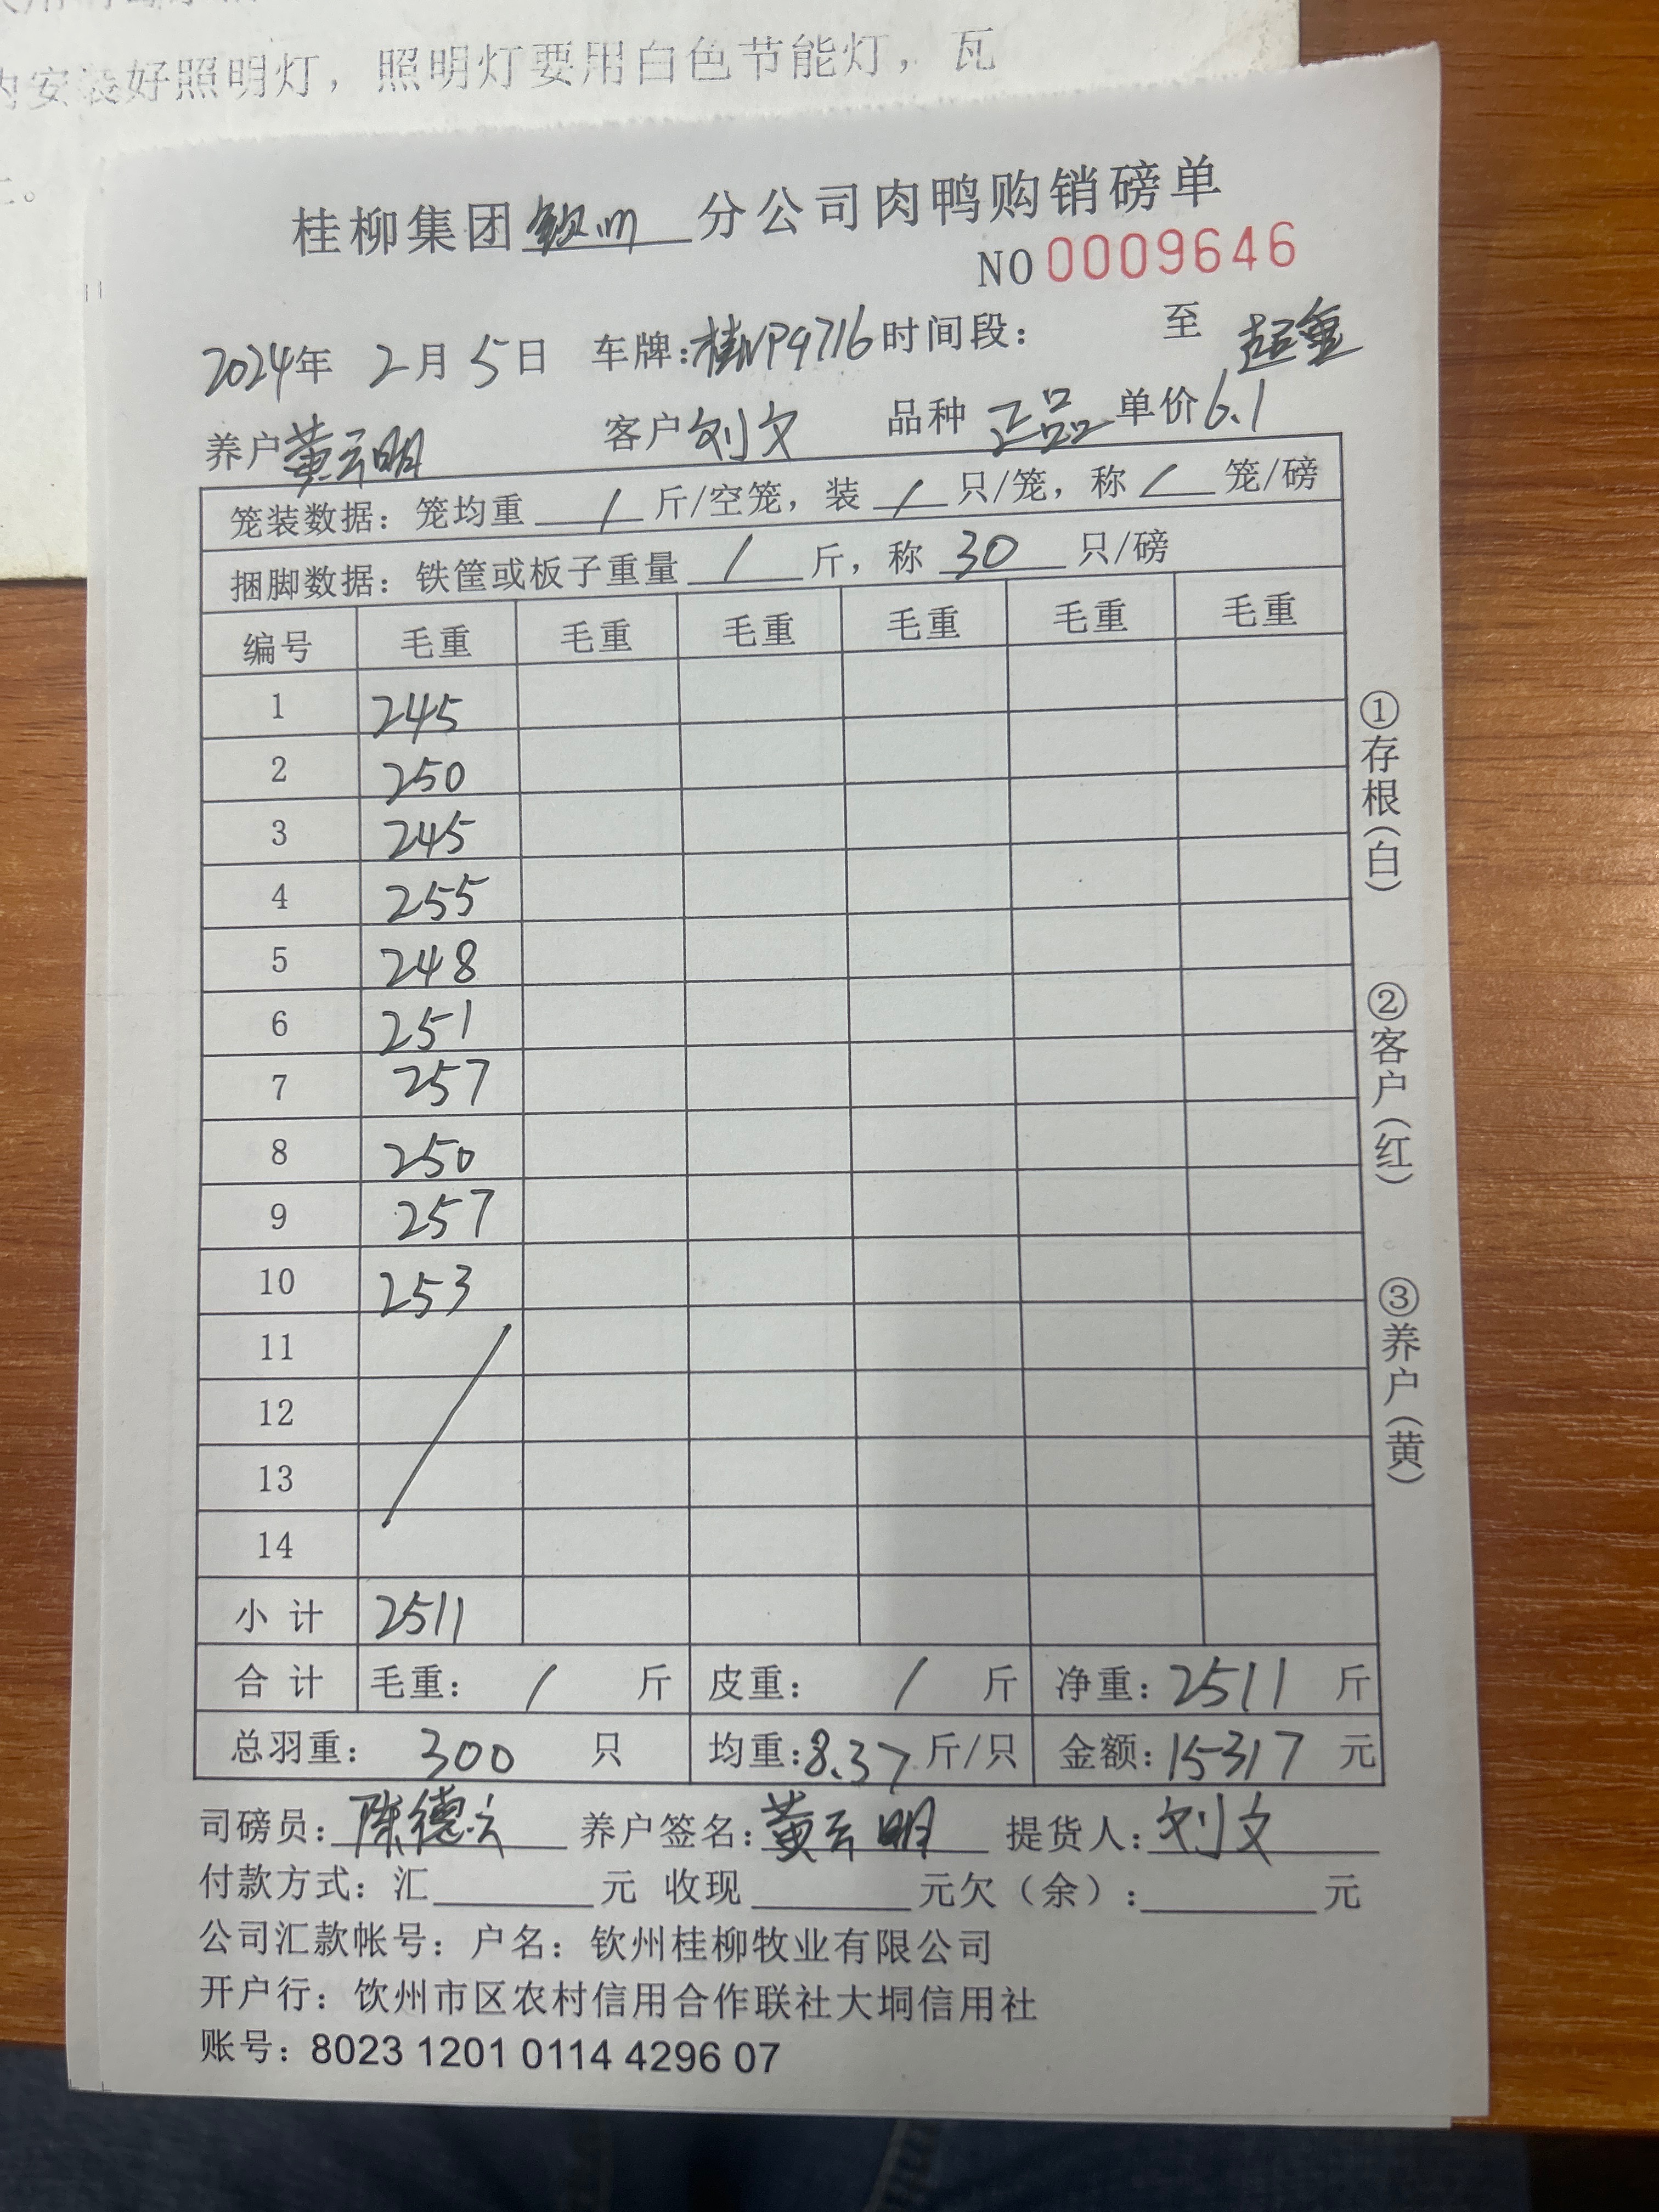 内安装好照明灯，照明灯要用白色节能灯，瓦
桂柳集团钦州分公司肉鸭购销磅单
NO 0009646
2024年 2月5日 车牌:桂NP9716 时间段: 至 超重
养户 黄云明 客户 刘文 品种 正品 单价 6.1
笼装数据：笼均重 / 斤/空笼，装 / 只/笼，称 / 笼/磅
捆脚数据：铁筐或板子重量 / 斤，称 30 只/磅
编号 毛重 毛重 毛重 毛重 毛重 毛重
1 245
2 250
3 245
4 255
5 248
6 251
7 257
8 250
9 257
10 253
11
12
13
14
小计 2511
合计 毛重： / 斤 皮重： / 斤 净重：2511 斤
总羽重： 300 只 均重:8.37 斤/只 金额:15317 元
司磅员:陈德云 养户签名:黄云明 提货人:刘文
付款方式：汇 元 收现 元欠（余）: 元
公司汇款帐号：户名：钦州桂柳牧业有限公司
开户行：饮州市区农村信用合作联社大垌信用社
账号：8023 1201 0114 4296 07
①存根(白) ②客户(红) ③养户(黄)